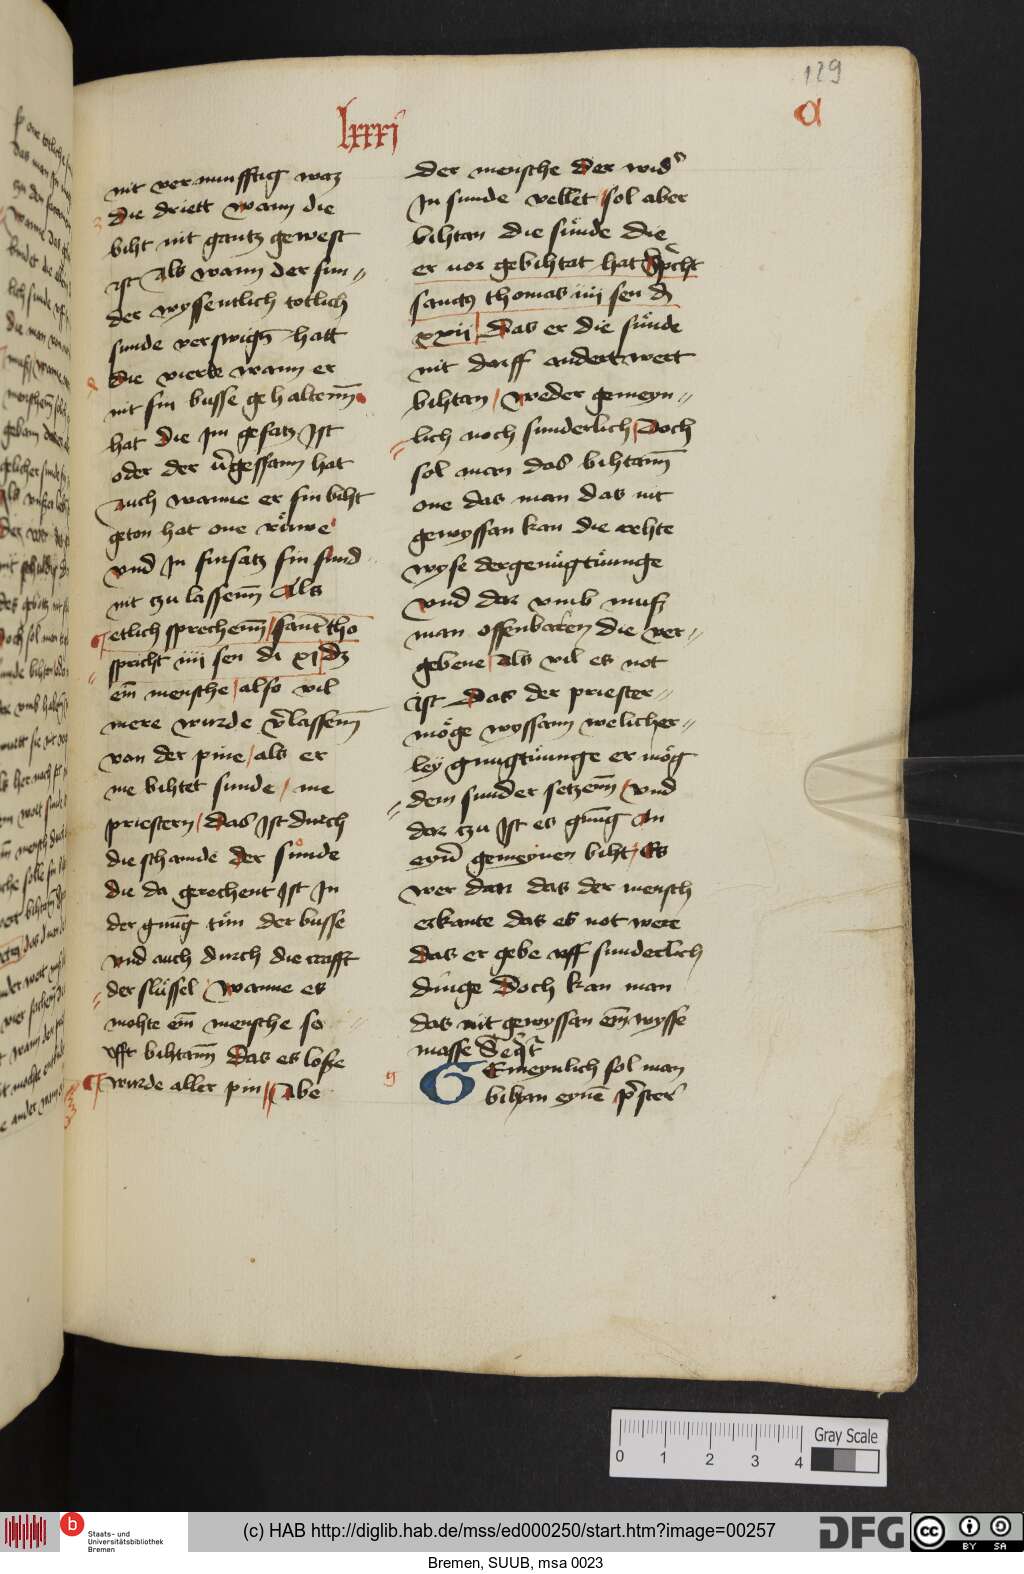 129
a
lxxxj
nit vernunfftig waz
3 die driett wann die
biht nit gantz gewest
ist Als wann der sun¬
der wyssentlich totlich
sunde verswign̄ hatt
4 die vierde wann er
nit sin busse gehaltenn̄
hat die Jm gesatz Jst
oder der v̄gessann hat
Auch wanne er sin biht
geton hat one rüwe
vnd Jn fursatz sin sund
nit zu lassenn̄ Als
etlich sprechenn̄ / sant tho
spricht iiij sen di xj dz
ein̄ mensche / also vil
mere wurde v̄lassenn̄
von der pine / als er
me bihtet sunde / me
priestern / Das Jst durch
die schande der sunde
die da gerechent Jst Jn
der gnug tün der busse
vnd auch durch die crafft
der slüssel / Wanne es
mohte ein̄ mensche so
offt bihtann̄ Das es losse
wurde aller pin // Abe
der mensche der wid
Jn sunde vellet / sol aber
bihtan die sünde die
er uor gebihtat hat Spͨcht
sanctus thomas iiij sen di
xxij / Das er die sünde
nit darff andertwert
bihtan / Weder gemeyn¬
lich noch sunderlich / Doch
sol man das bihtann̄
one das man das nit
gewyssan kan die rehte
wyse der genügtüunge
vnd dar vmb musz
man offenbaren die ver¬
gebene / Als vil es not
ist Das der priester
möge wyssann welicher¬
ley gnugtüunge er mög
dem sunder setzenn̄ / vnd
dar zu Jst es gnūg An
eyn̄ gemeynen biht / Es
wer dan das der mensch
erkante das es not were
das er gebe vff sunderlich
dinge Doch kan man
das nit gewyssan ein̄ wysse
masse Seqr
9 GEmeynlich sol man
bihtan eynē pͥster
0 1 2 3 4
Gray Scale
b
Staats- und
Universitätsbibliothek
Bremen
(c) HAB http://diglib.hab.de/mss/ed000250/start.htm?image=00257
DFG
cc
BY SA
Bremen, SUUB, msa 0023